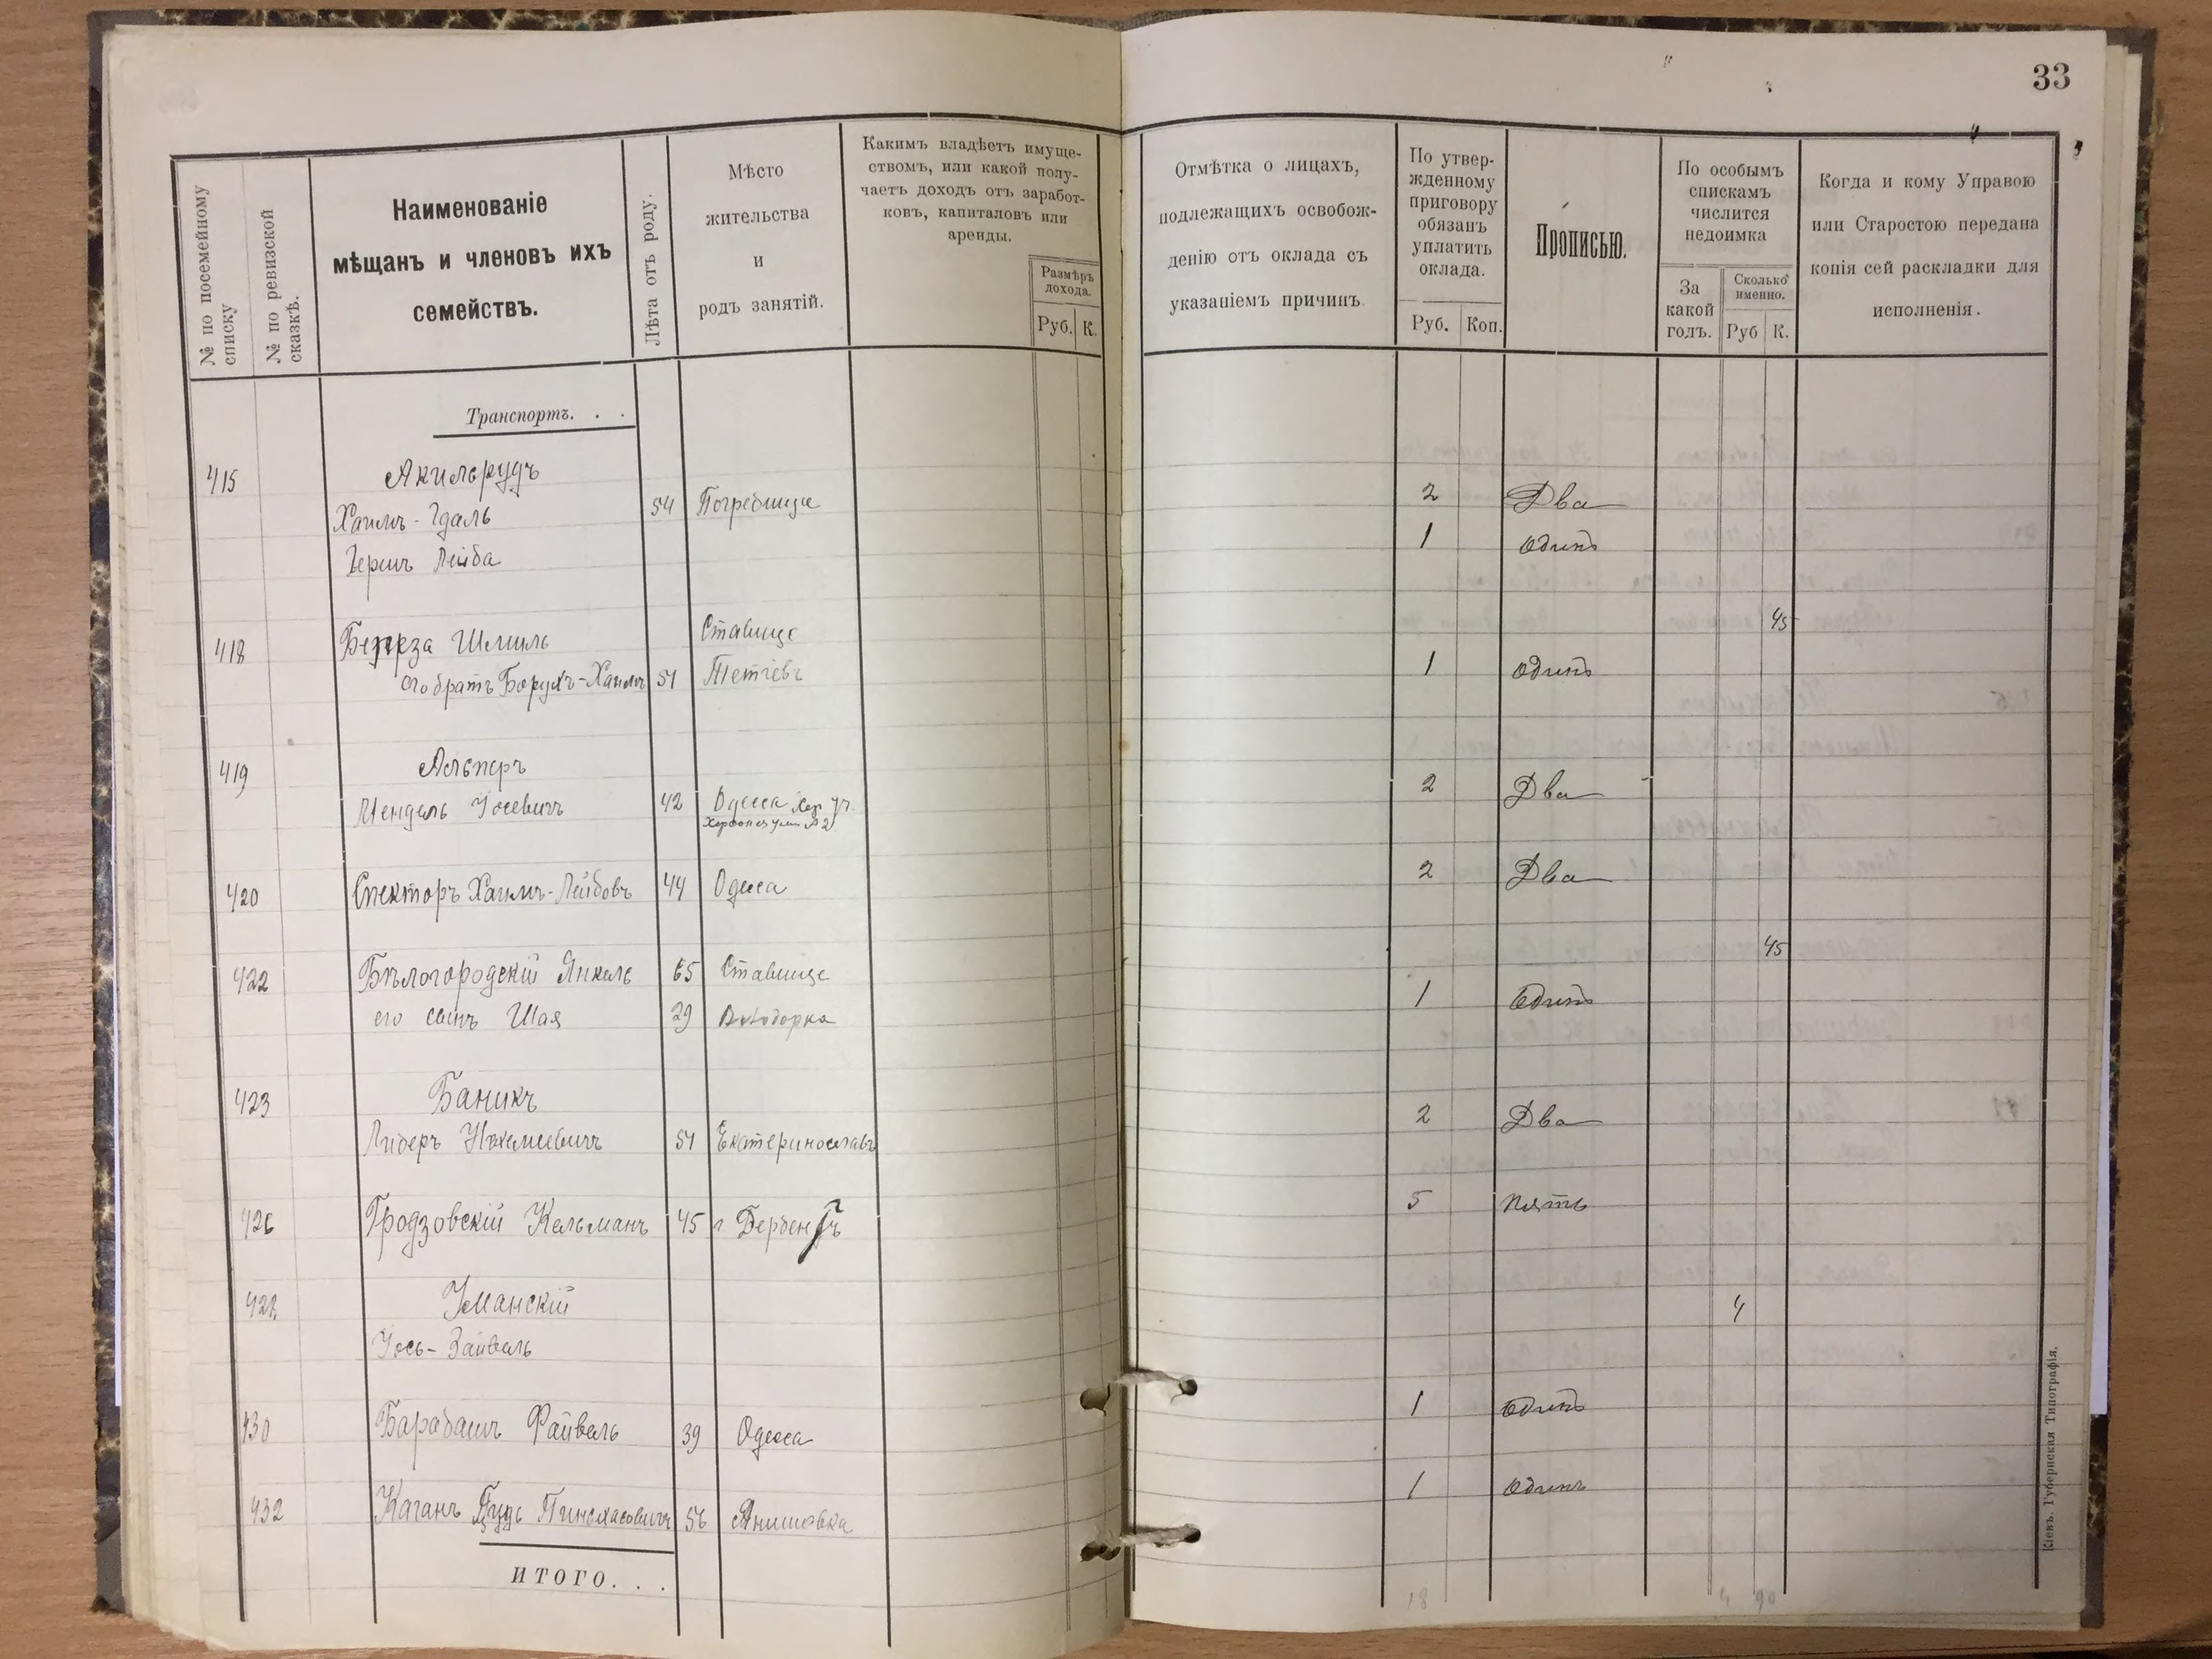 33
№ по посемейному списку
№ по ревизской сказкѣ.
Наименованіе
мѣщанъ и членовъ ихъ
семействъ.
Лѣта отъ роду.
Мѣсто
жительства
и
родъ занятій.
Какимъ владѣетъ имуще-
ствомъ, или какой полу-
чаетъ доходъ отъ заработ-
ковъ, капиталовъ или
аренды.
Размѣръ
дохода.
Руб. К.
Отмѣтка о лицахъ,
подлежащихъ освобож-
денію отъ оклада съ
указаніемъ причинъ
По утвер-
жденному
приговору
обязанъ
уплатить
оклада.
Руб. Коп.
Прописью.
По особымъ
спискамъ
числится
недоимка
За
какой
годъ.
Сколько
именно.
Руб К.
Когда и кому Управою
или Старостою передана
копія сей раскладки для
исполненія.
Транспортъ. . .
415 Акильрудъ
Хаимъ-Гдаль 54 Погребище 2 Два
Гершъ Лейба 1 Одинъ
418 Береза Шмиль Ставище 45
его братъ Борухъ-Хаимъ 51 Тетіевъ 1 Одинъ
419 Альперъ
Мендель Іосевичъ 42 Одесса 2 Два
420 Спекторъ Хаимъ-Лейбовъ 44 Одесса 2 Два
422 Бѣлогородскій Янкель 65 Ставище 45
его сынъ Шая 29 1 Одинъ
423 Баникъ
Лидеръ 51 Екатеринославъ 2 Два
426 Гродзовскій Кельманъ 45 г Дербентъ 5 Пять
428 Уманскій 4
Іось-Зайвель
430 Барабашъ Файвель 39 Одесса 1 Одинъ
432 Каганъ Пинхасовичъ 56 1 Одинъ
ИТОГО. . .
18 4 90
Кіевъ. Губернская Типографія.